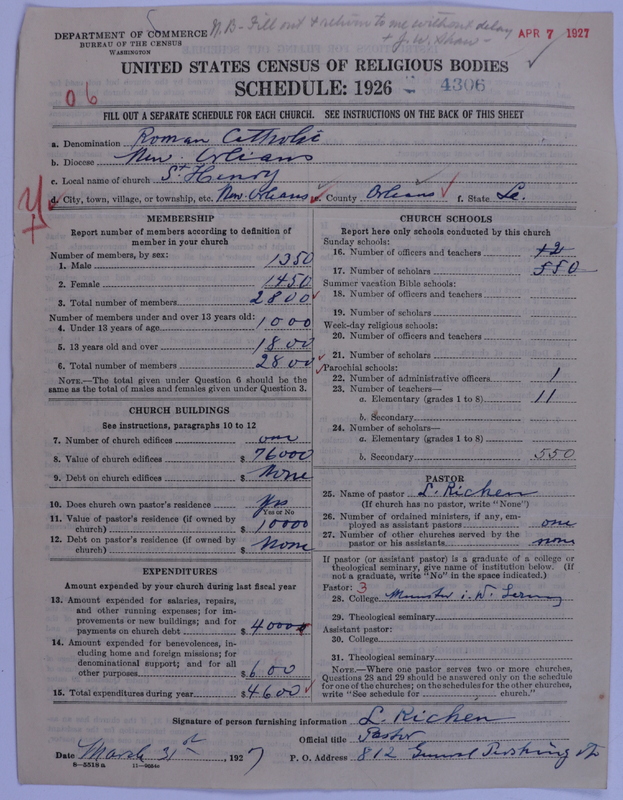 N.B- Fill out & return to me without delay
+ J. W. Shaw -
APR 7 1927
DEPARTMENT OF COMMERCE
BUREAU OF THE CENSUS
WASHINGTON
UNITED STATES CENSUS OF RELIGIOUS BODIES
SCHEDULE: 1926
4306
06
FILL OUT A SEPARATE SCHEDULE FOR EACH CHURCH. SEE INSTRUCTIONS ON THE BACK OF THIS SHEET
a. Denomination Roman Catholic
b. Diocese New. Orleans
c. Local name of church St Henry
d. City, town, village, or township, etc. New Orleans e. County Orleans f. State La.
MEMBERSHIP
Report number of members according to definition of
member in your church
Number of members, by sex:
1. Male 1350
2. Female 1450
3. Total number of members 2800
Number of members under and over 13 years old:
4. Under 13 years of age 1000
5. 13 years old and over 1800
6. Total number of members 2800
NOTE.—The total given under Question 6 should be the
same as the total of males and females given under Question 3.
CHURCH BUILDINGS
See instructions, paragraphs 10 to 12
7. Number of church edifices one
8. Value of church edifices $ 76000
9. Debt on church edifices $ None
10. Does church own pastor's residence Yes
Yes or No
11. Value of pastor's residence (if owned by
church) $ 10000
12. Debt on pastor's residence (if owned by
church) $ None
EXPENDITURES
Amount expended by your church during last fiscal year
13. Amount expended for salaries, repairs,
and other running expenses; for im-
provements or new buildings; and for
payments on church debt $ 4000
14. Amount expended for benevolences, in-
cluding home and foreign missions; for
denominational support; and for all
other purposes $ 600
15. Total expenditures during year $ 4600
CHURCH SCHOOLS
Report here only schools conducted by this church
Sunday schools:
16. Number of officers and teachers 12
17. Number of scholars 550
Summer vacation Bible schools:
18. Number of officers and teachers
19. Number of scholars
Week-day religious schools:
20. Number of officers and teachers
21. Number of scholars
Parochial schools:
22. Number of administrative officers 1
23. Number of teachers—
a. Elementary (grades 1 to 8) 11
b. Secondary
24. Number of scholars—
a. Elementary (grades 1 to 8)
b. Secondary 550
PASTOR
25. Name of pastor L. Richen
(If church has no pastor, write "None")
26. Number of ordained ministers, if any, em-
ployed as assistant pastors one
27. Number of other churches served by the
pastor or his assistants none
If pastor (or assistant pastor) is a graduate of a college or
theological seminary, give name of institution below. (If
not a graduate, write "No" in the space indicated.)
Pastor: 3
28. College Munster i. W.
29. Theological seminary
Assistant pastor:
30. College
31. Theological seminary
NOTE.—Where one pastor serves two or more churches,
Questions 28 and 29 should be answered only on the schedule
for one of the churches; on the schedules for the other churches,
write "See schedule for church."
Signature of person furnishing information L. Richen
Official title Pastor
Date March 31st, 1927 P. O. Address 812 General Pershing St
8-5518 a 11-9024